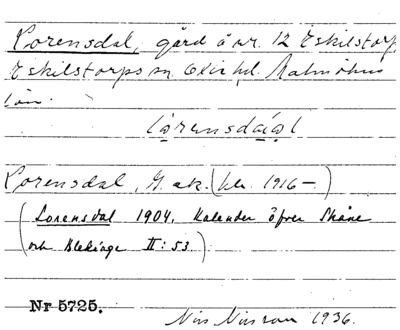 Lorensdal, gård å nr. 12 Eskilstorp
Eskilstorps sn Oxie hd. Malmöhus
län.
Lorensdal, G. ak. (bl. 1916–)
(Lorensdal 1904. Kalender öfver Skåne
och Blekinge II: 53.)
Nr 5725.
Nils Nilsson 1936.